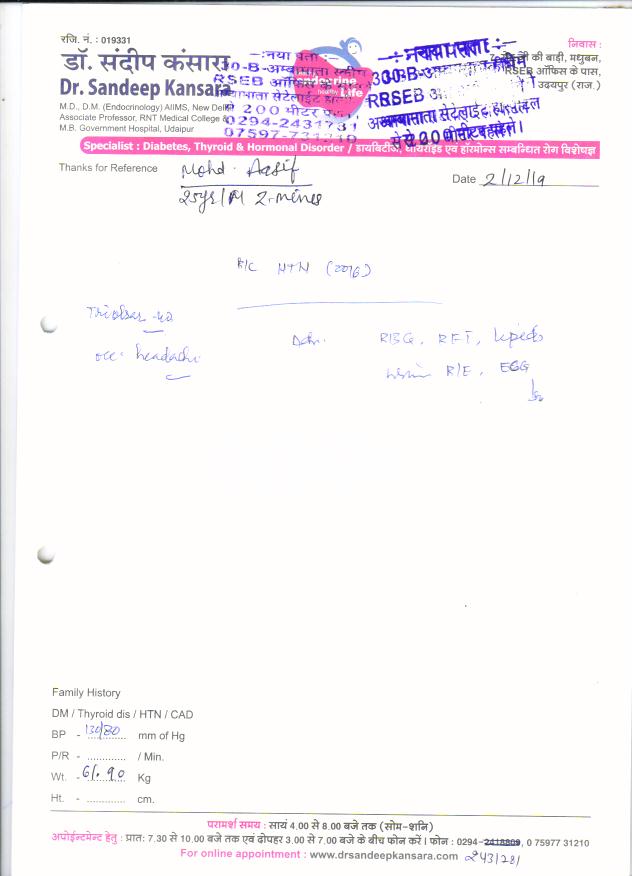 रजि. नं. : 019331
डॉ. संदीप कंसारा
Dr. Sandeep Kansara
M.D., D.M. (Endocrinology) AIIMS, New Delhi
Associate Professor, RNT Medical College &
M.B. Government Hospital, Udaipur
-: नया पता :-
30-B-अम्बामाता स्कीम
RSEB ऑफिस
200 मीटर
0294-2431731
endocrine
healthy Life
-: नया पता :-
30-B-
RSEB
अम्बामाता सेटेलाईट
से 200 मीटर पहले।
निवास :
की बाड़ी, मधुबन,
RSEB ऑफिस के पास,
उदयपुर (राज.)
Specialist : Diabetes, Thyroid & Hormonal Disorder / डायबिटीज, थायराइड एवं हॉरमोन्स सम्बन्धित रोग विशेषज्ञ
Thanks for Reference Mohd. Aasif
Date 2/12/19
25yr/M Z-mines
K/C HTN (2016)
Triolsar
occ. headache
Adv. RBG, RFT, lipids
urine R/E, ECG
Family History
DM / Thyroid dis / HTN / CAD
BP - 130/80 mm of Hg
P/R - ............. / Min.
Wt. - 90 Kg
Ht. - ............. cm.
परामर्श समय : सायं 4.00 से 8.00 बजे तक (सोम-शनि)
अपोईन्टमेन्ट हेतु : प्रात: 7.30 से 10.00 बजे तक एवं दोपहर 3.00 से 7.00 बजे के बीच फोन करें। फोन : 0294-2418809, 0 75977 31210
For online appointment : www.drsandeepkansara.com 2431281